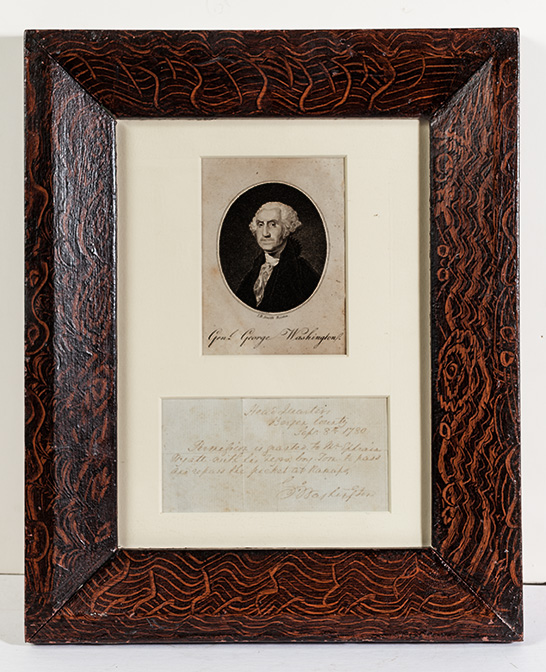 Genl. George Washington.
Head Quarters
Bergen County
Sept. 8th 1780
Permission is granted to Mr.
with his to pass
and repass the picket at Ramapo
G Washington